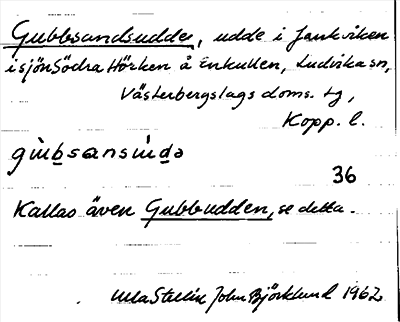 Gubbsandsudden, udde i Jankviken
i sjön Södra Hörken å Enkullen, Ludvika sn,
Västerbergslags doms. tg,
Kopp. l.
gu̇bsansu̇də
36
Kallas även Gubbudden, se detta.
Ulla Stellin John Björklund 1962